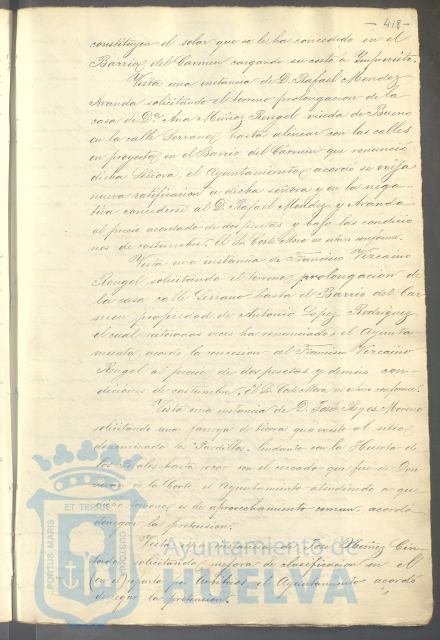 - 418 -
constituyen el solar que se le ha concedido en el
Barrio del Carmen cargando su costo á Imprevisto.
Vista una instancia de D. Rafael Mendez
Aranda solicitando el terreno prolongacion de la
casa de Dª Ana Muñoz Rengel viuda de Bueno
en la calle Serrano hasta alinear con las calles
en proyecto en el Barrio del Carmen que renunció
dicha Señora, el Ayuntamiento acordó se exija
nueva ratificacion a dicha señora y en la nega-
tiva concederse al D. Rafael Mendez y Aranda
al precio acordado de dos pesetas y bajo las condicio-
nes de costumbre. El Sr. Corte Mora no estuvo conforme.
Vista una instancia de Francisco Vizcaino
Rengel solicitando el terreno prolongacion de
la casa calle Serrano hasta el Barrio del Car-
men propiedad de Antonio Lopez Rodriguez
el cual reiteradas veces ha renunciado, el Ayunta-
miento acordó la concesion al Francisco Vizcaino
Rengel al precio de dos pesetas y demás con-
diciones de costumbre. El Sr. Corte Mora no estuvo conforme.
Vista una instancia de D. José Reyes Moreno
solicitando una fanega de tierra que existe al sitio
denominado los Pardillos, lindante con la Huerta de
los hasta rozar con el cercado que fué de Don
de la Corte, el Ayuntamiento atendiendo a que
terreno es de aprovechamiento comun, acordó
denegar la pretension.
Vista una instancia de José Muñez Cin-
tado solicitando mejora de clasificacion en el
reparto por arbitrios el Ayuntamiento acordó
denegar la pretension.
PORTUS MARIS ET TERRE CUSTODIA
Ayuntamiento de
HUELVA